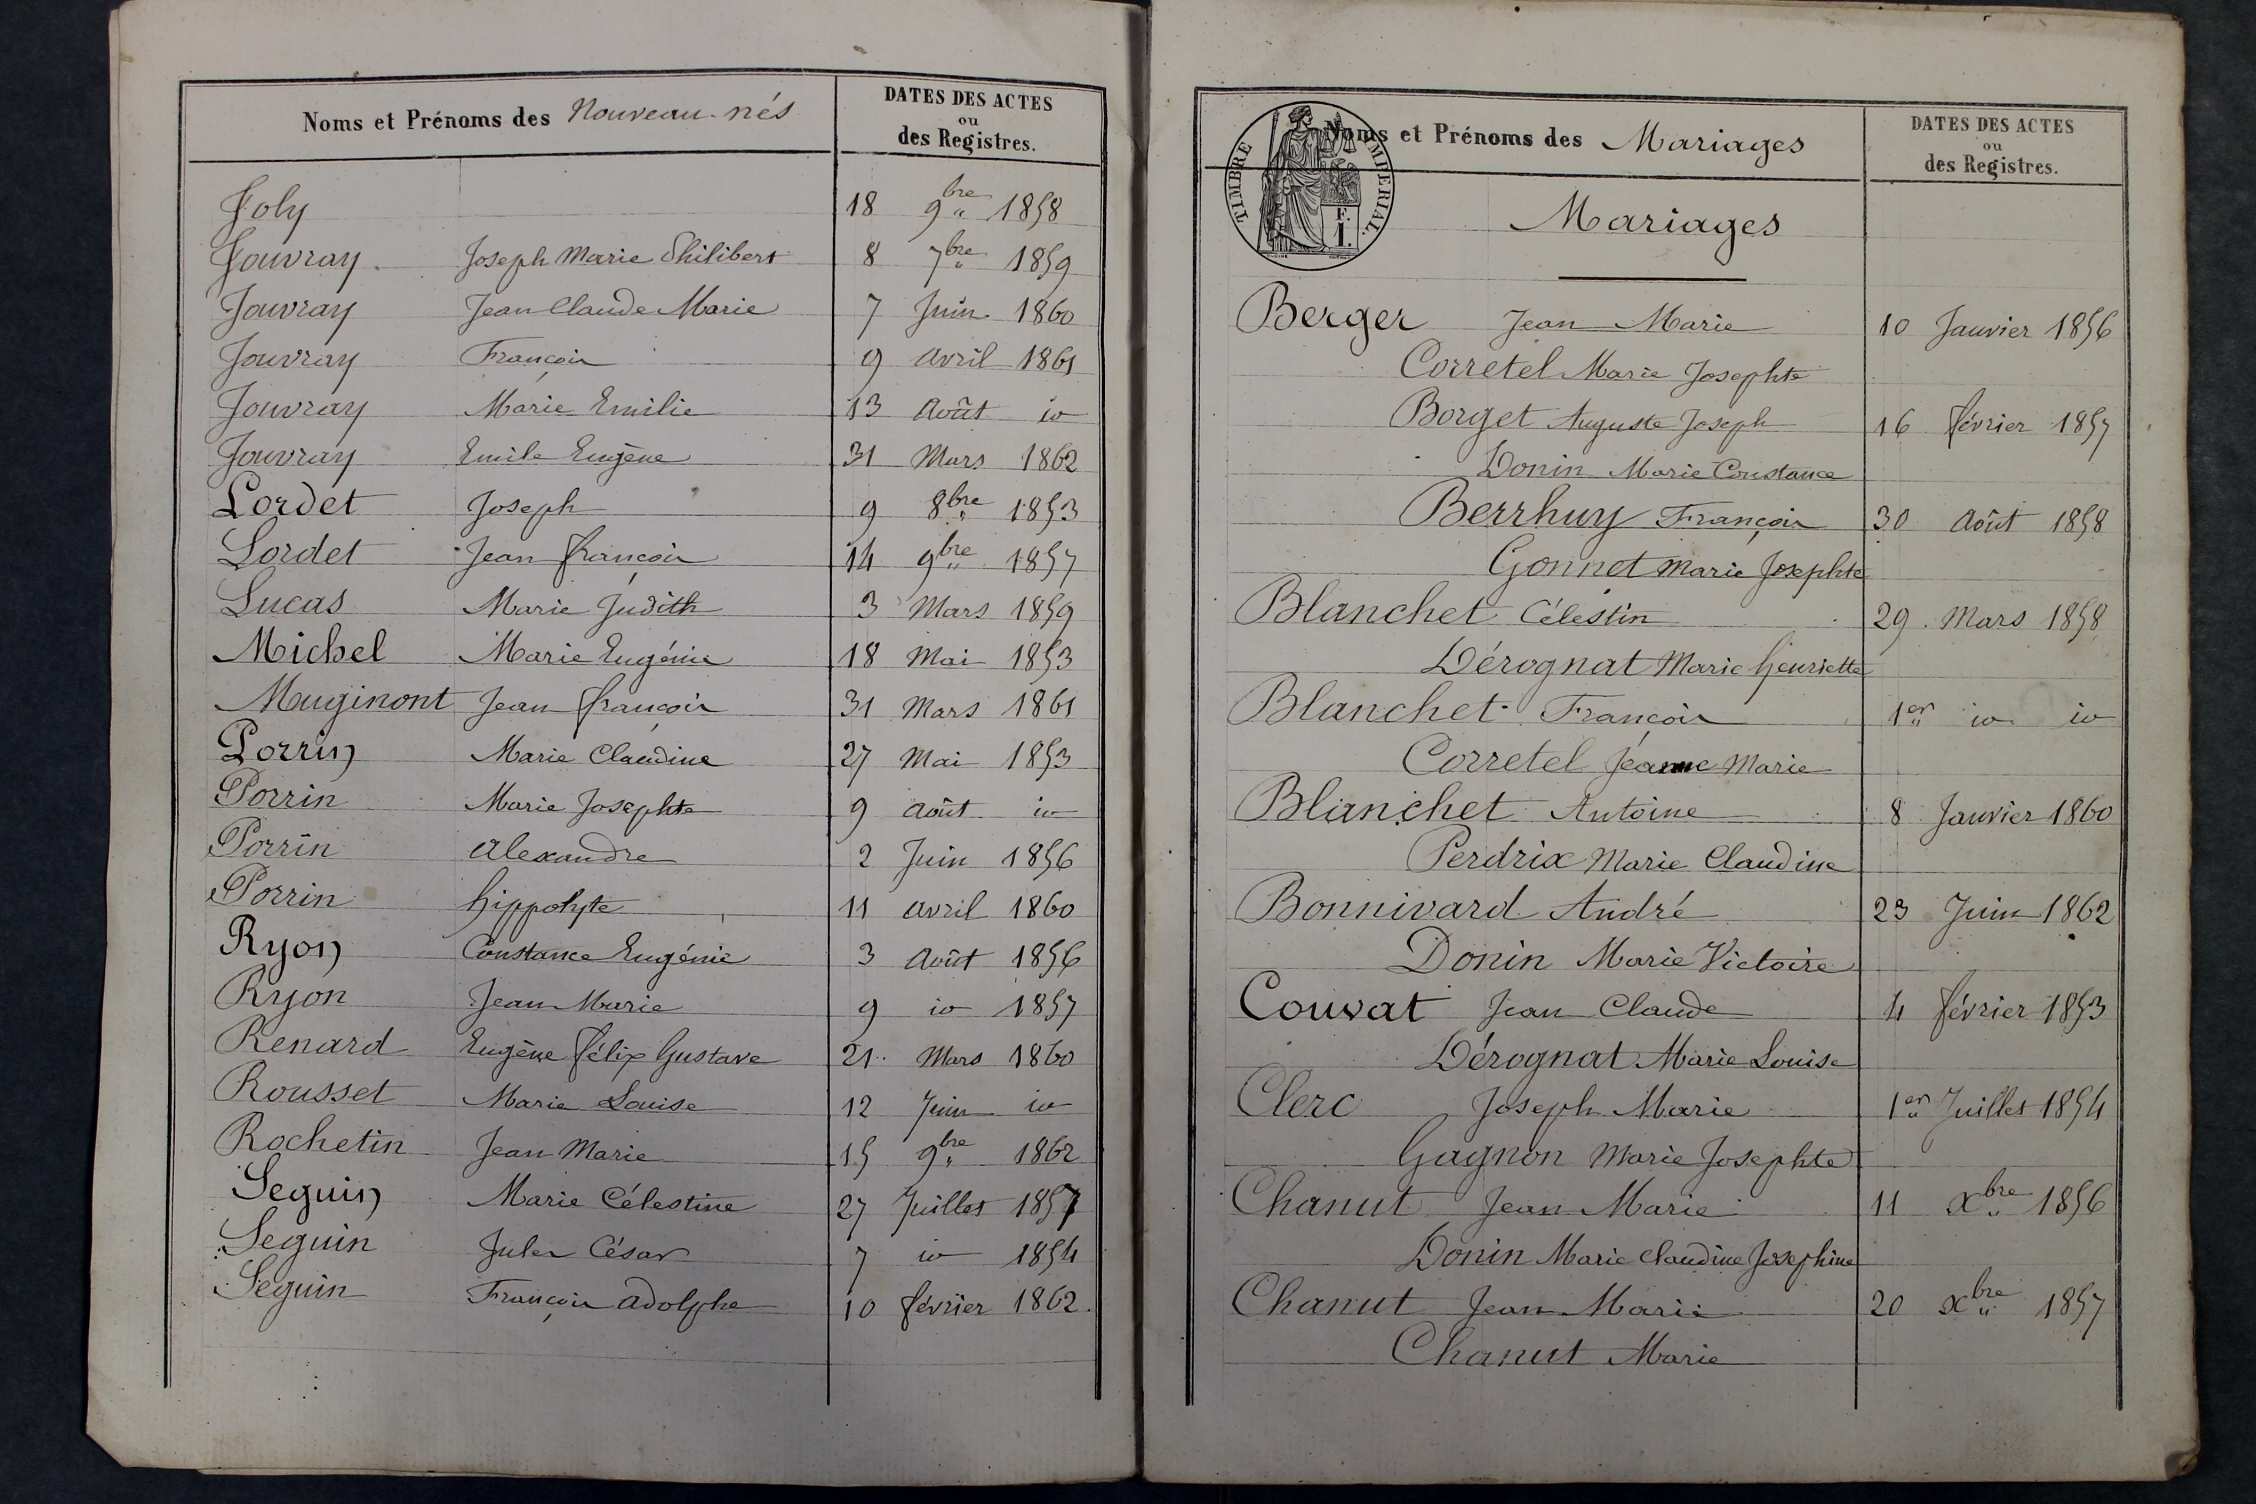 Noms et Prénoms des Nouveau-nés
DATES DES ACTES
ou
des Registres.
Joly 18 9bre 1858
Jouvray Joseph Marie Philibert 8 7bre 1859
Jouvray Jean Claude Marie 7 Juin 1860
Jouvray François 9 avril 1861
Jouvray Marie Emilie 13 Août io
Jouvray Emile Eugène 31 Mars 1862
Lordet Joseph 9 8bre 1853
Lordet Jean françois 14 9bre 1857
Lucas Marie Judith 3 Mars 1859
Michel Marie Eugénie 18 Mai 1853
Muginont Jean françois 31 Mars 1861
Porrin Marie Claudine 27 Mai 1853
Porrin Marie Josephte 9 Août io
Porrin Alexandre 2 Juin 1856
Porrin hippolyte 11 avril 1860
Ryon Constance Eugénie 3 Août 1856
Ryon Jean Marie 9 io 1857
Renard Eugène félix Gustave 21 Mars 1860
Rousset Marie Louise 12 Juin io
Rochetin Jean Marie 15 9bre 1862
Seguin Marie Célestine 27 Juillet 1857
Seguin Jules César 7 io 1854
Seguin François Adolphe 10 février 1862
TIMBRE IMPERIAL.
E.
I.
Noms et Prénoms des Mariages
DATES DES ACTES
ou
des Registres.
Mariages
Berger Jean Marie 10 Janvier 1856
Corretel Marie Josephte
Borget Auguste Joseph 16 février 1857
Donin Marie Constance
Berrhuy François 30 Août 1858
Gonnet Marie Josephte
Blanchet Célestin 29 Mars 1858
Dérognat Marie henriette
Blanchet François 1er io io
Corretel Jeanne Marie
Blanchet Antoine 8 Janvier 1860
Perdrix Marie Claudine
Bonnivard André 23 Juin 1862
Donin Marie Victoire
Couvat Jean Claude 4 février 1853
Dérognat Marie Louise
Clerc Joseph Marie 1er Juillet 1854
Gagnon Marie Josephte
Chanut Jean Marie 11 Xbre 1856
Donin Marie Claudine Josephine
Chanut Jean Marie 20 Xbre 1857
Chanut Marie